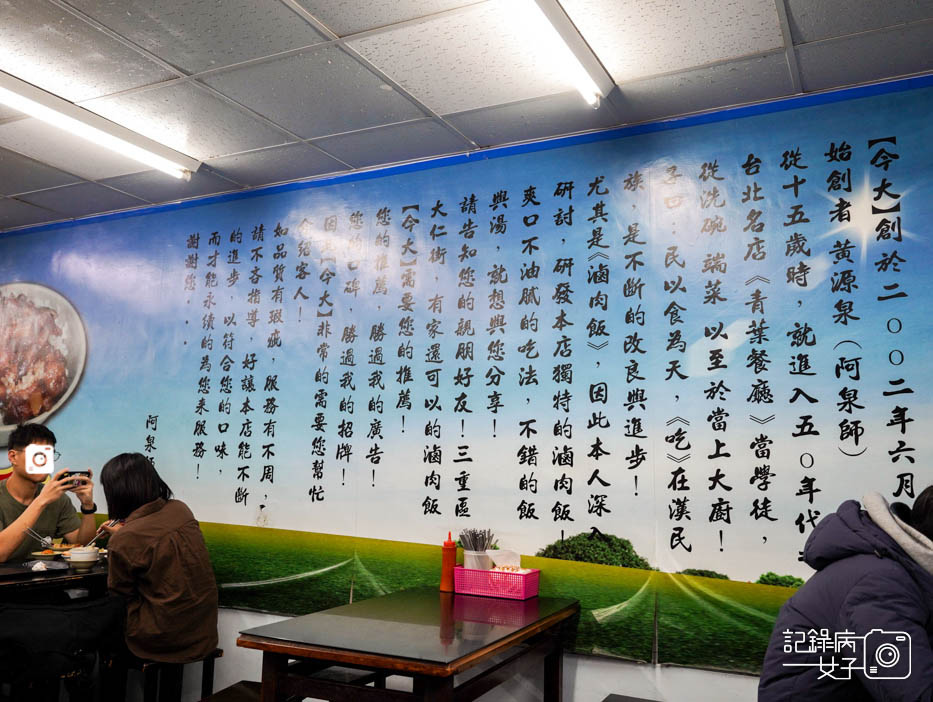 【今大】創於二〇〇二年六月
始創者 黃源泉（阿泉師）
從十五歲時，就進入五〇年代
台北名店《青葉餐廳》當學徒，
從洗碗 端菜 以至於當上大廚！
子曰：民以食為天，《吃》在漢民
族，是不斷的改良與進步！
尤其是《滷肉飯》，因此本人深入
研討，研發本店獨特的滷肉飯！
爽口不油膩的吃法，不錯的飯
與湯，就想與您分享！
請告知您的親朋好友！三重區
大仁街，有家還可以的滷肉飯
【今大】需要您的推薦！
您的推薦 勝過我的廣告！
您的口碑，勝過我的招牌！
因為【今大】非常的需要您幫忙
介紹客人！
如品質有瑕疵，服務有不周，
請不吝指導，好讓本店能不斷
的進步，以符合您的口味，
而才能永續的為您來服務！
謝謝您..
阿泉
記錄病
女子